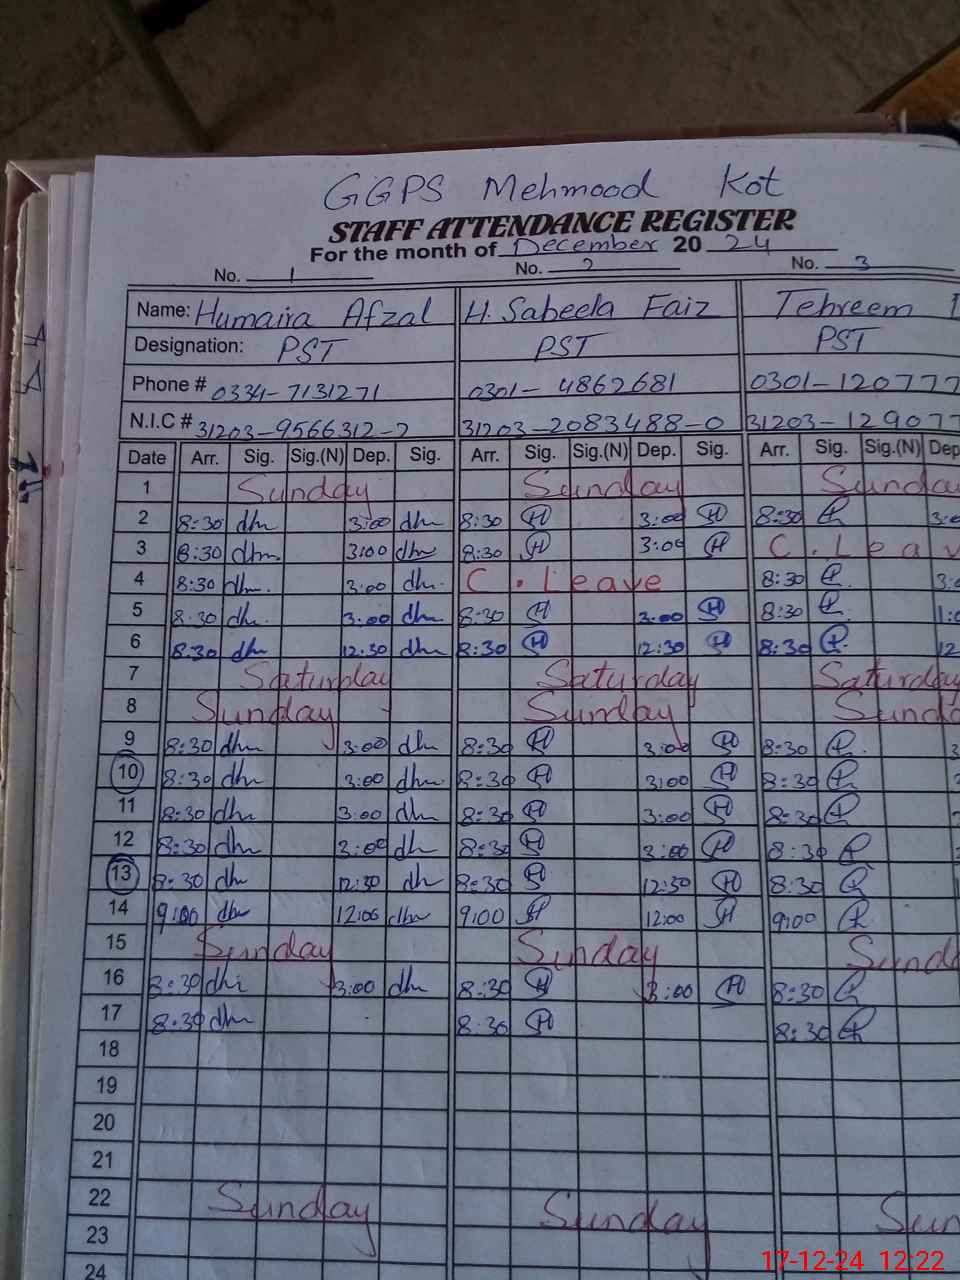 GGPS Mehmood Kot
STAFF ATTENDANCE REGISTER
For the month of December 20 24
No. 1 No. 2 No. 3
Name: Humaira Afzal H. Sabeela Faiz Tehreem
Designation: PST PST PST
Phone # 0334-7131271 0301-4862681 0301-120777
N.I.C # 31203-9566312-2 31203-2083488-0 31203-129077
Date Arr. Sig. Sig.(N) Dep. Sig. Arr. Sig. Sig.(N) Dep. Sig. Arr. Sig. Sig.(N) Dep
1 Sunday Sunday Sunday
2 8:30 dhn 3:00 dhn 8:30 H 3:00 H 8:30
3 8:30 dhn 3:00 dhn 8:30 H 3:00 H C. Leav
4 8:30 dhn 3:00 dhn C. Leave 8:30
5 8:30 dhn 3:00 dhn 8:30 H 3:00 H 8:30
6 8:30 dhn 12:30 dhn 8:30 H 12:30 H 8:30 12
7 Saturday Saturday Saturday
8 Sunday Sunday Sunda
9 8:30 dhn 3:00 dhn 8:30 H 3:00 H 8:30
10 8:30 dhn 3:00 dhn 8:30 H 3:00 H 8:30
11 8:30 dhn 3:00 dhn 8:30 H 3:00 H 8:30
12 8:30 dhn 3:00 dhn 8:30 H 3:00 H 8:30
13 8:30 dhn 12:30 dhn 8:30 H 12:30 H 8:30
14 9:00 dhn 12:00 dhn 9:00 H 12:00 H 9:00
15 Sunday Sunday Sund
16 8:30 dhn 3:00 dhn 8:30 H 3:00 H 8:30
17 8:30 dhn 8:30 H 8:30
18
19
20
21
22 Sunday Sunday Sun
23
24
17-12-24 12:22